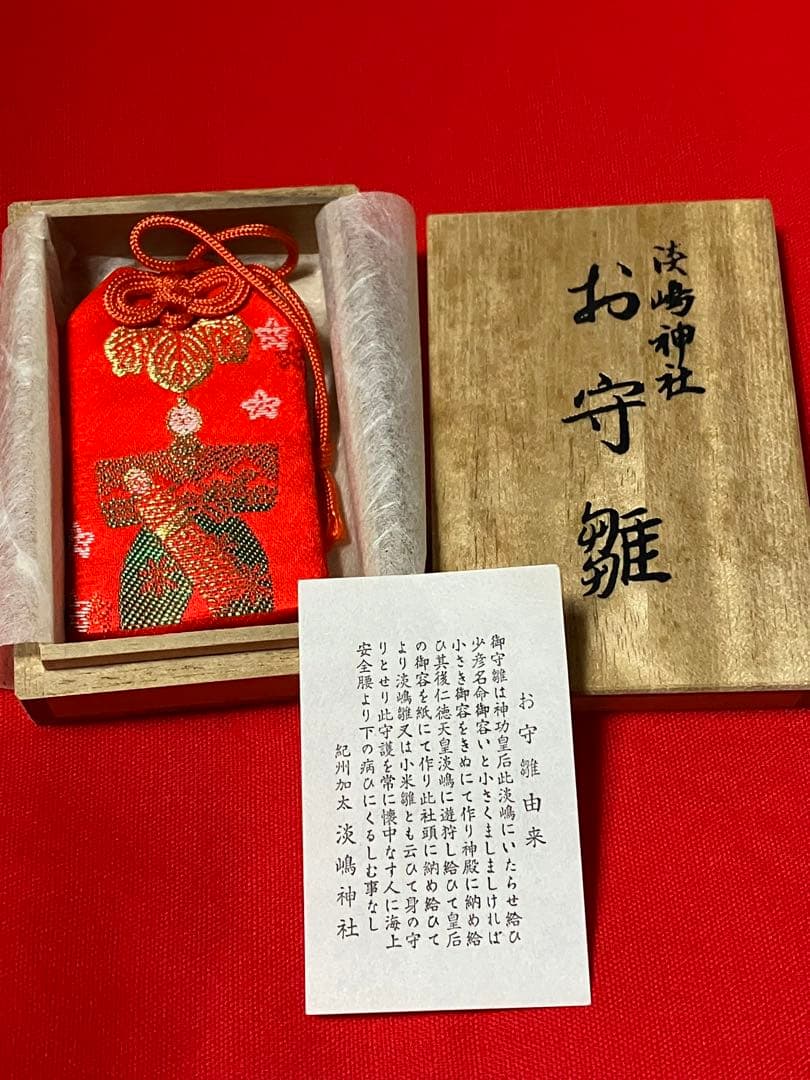 淡嶋神社
お守雛
お守雛由来
御守雛は神功皇后此淡嶋にいたらせ給ひ
少彦名命御容いと小さくましましければ
小さき御容をきぬにて作り神殿に納め給
ひ其後仁徳天皇淡嶋に遊狩し給ひて皇后
の御容を紙にて作り此社頭に納め給ひて
より淡嶋雛又は小米雛とも云ひて身の守
りとせり此守護を常に懐中なす人に海上
安全腰より下の病ひにくるしむ事なし
紀州加太 淡嶋神社